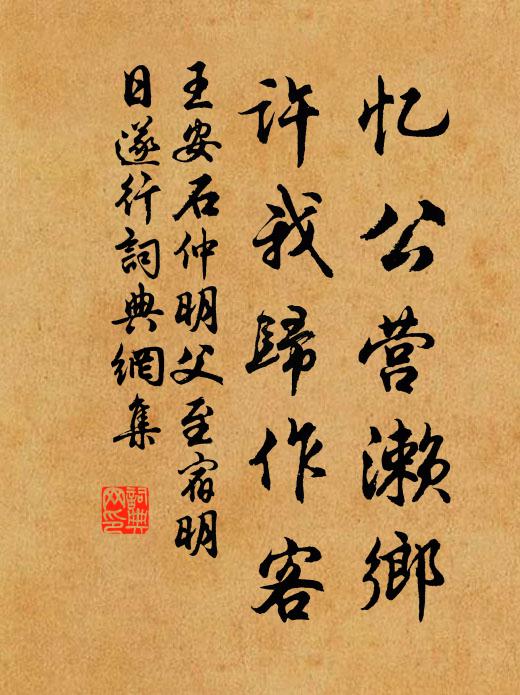 忆公营濑鄉
许我歸作客
王安石仲明父至宿明
日遂行詞典網集
詞典
网印